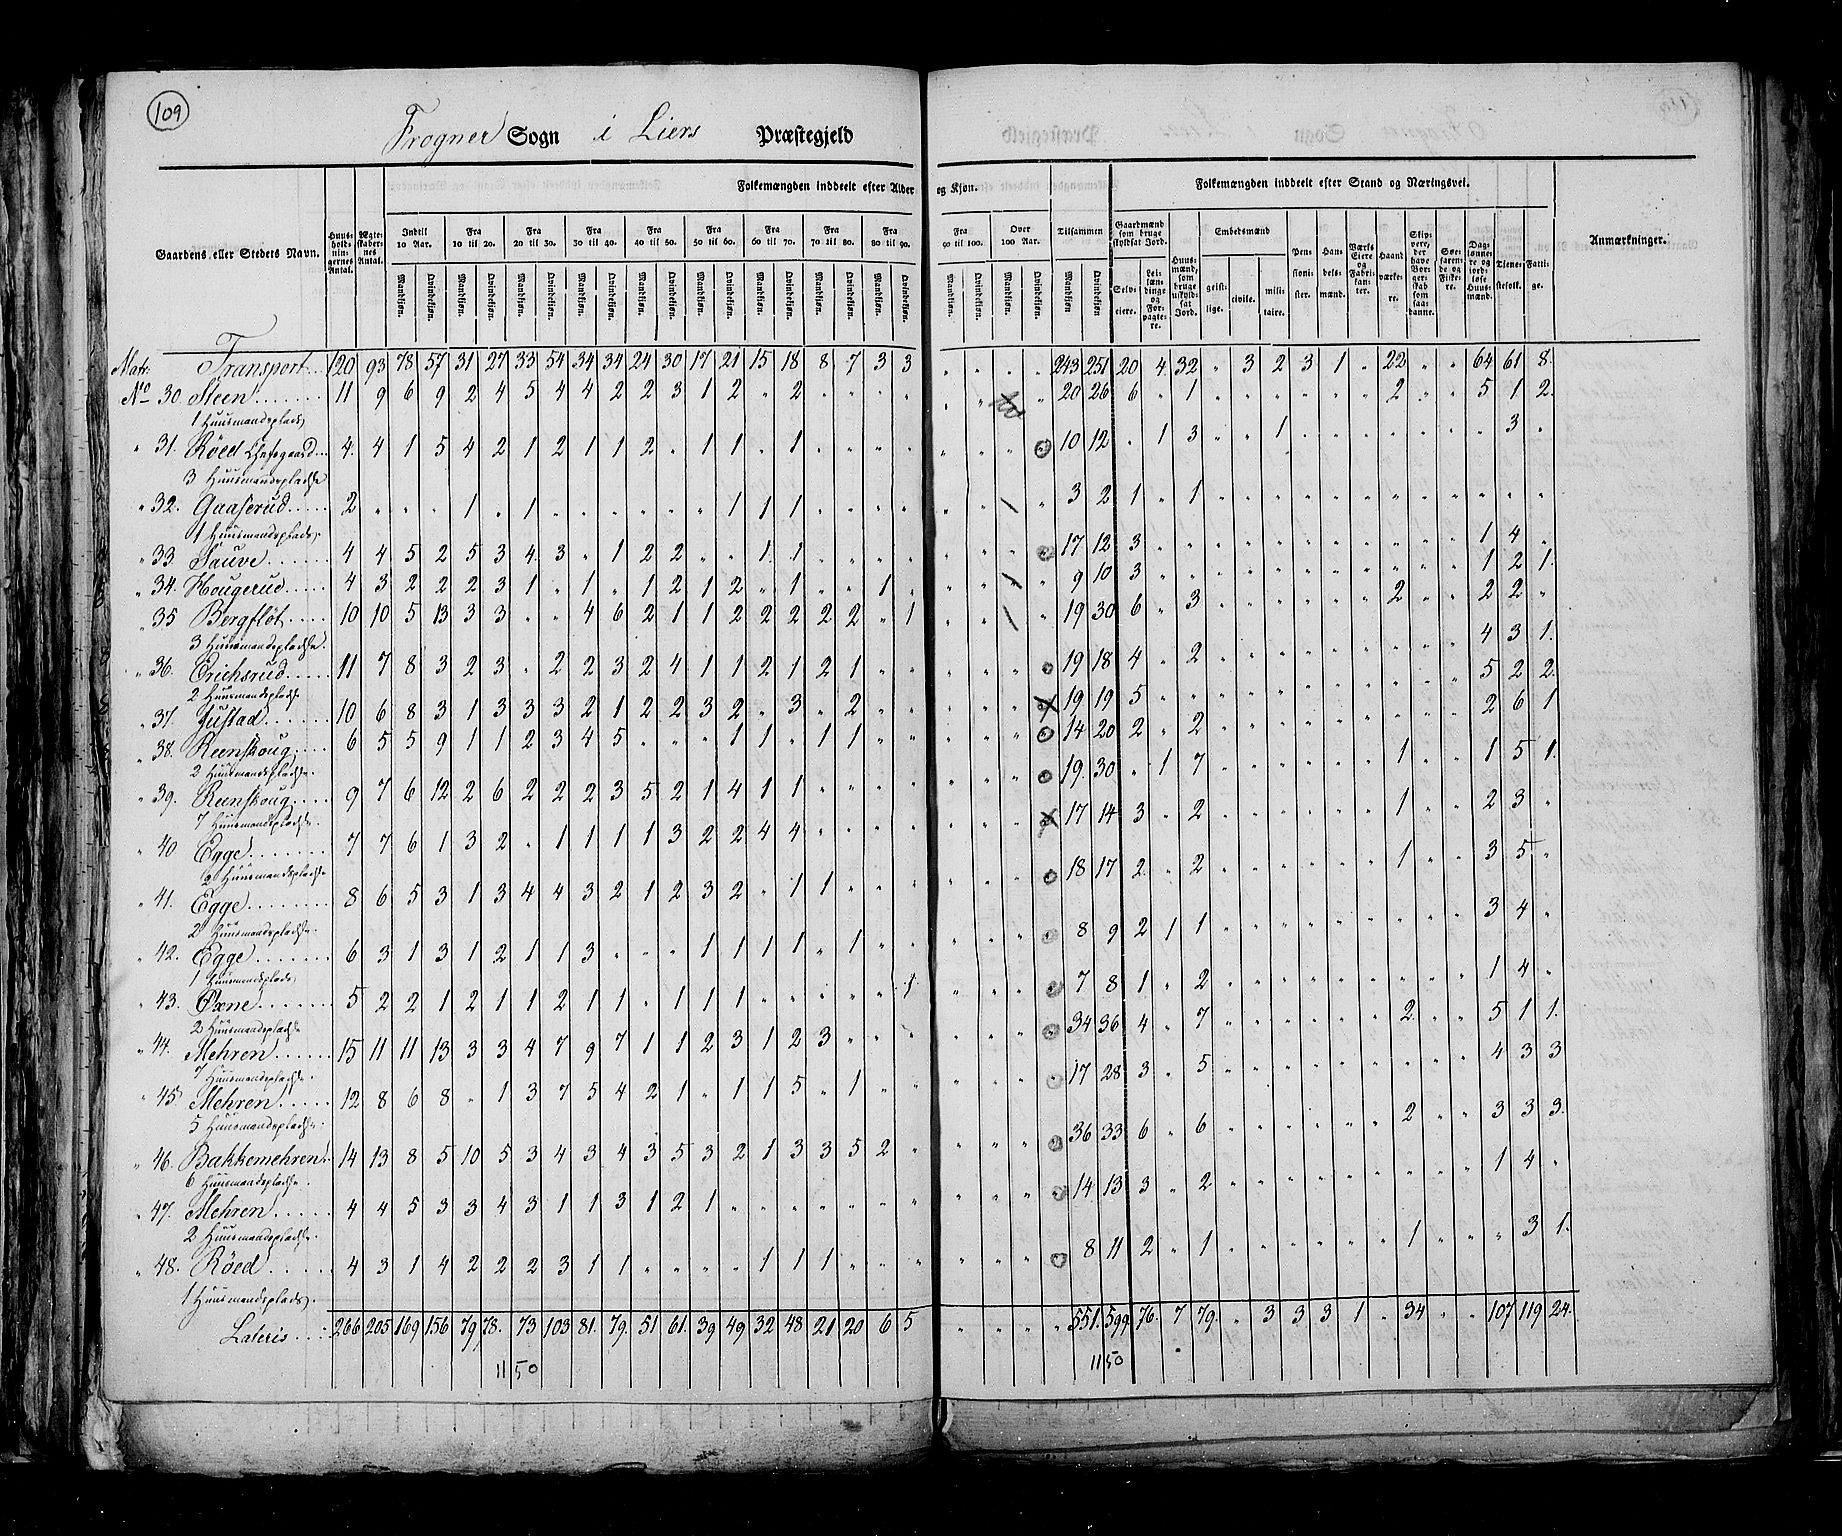 109
Frogner Sogn i Liers Præstegjeld
Gaardens eller Stedets Navn.
Huus-holdningernes Antal.
Ægteskabernes Antal.
Folkemængden inddeelt efter Alder og Kjøn.
Indtil 10 Aar. Fra 10 til 20. Fra 20 til 30. Fra 30 til 40. Fra 40 til 50. Fra 50 til 60. Fra 60 til 70. Fra 70 til 80. Fra 80 til 90. Fra 90 til 100. Over 100 Aar. Tilsammen
Mandkjøn. Qvindekjøn.
Folkemængden inddeelt efter Stand og Næringsvei.
Gaardmænd som bruge skyldsat Jord.
Selveiere. Leilændinge og Forpagtere.
Huusmænd, som bruge uskyldsat Jord.
Embedsmænd
geistlige. civile. militaire.
Pensionister. Handelsmænd. Værks Eiere og Fabrikanter. Haandværkere. Skippere, der have Borgerskab som saadanne. Søefarende og Fiskere. Daglønnere og jordløse Huusmænd. Tjenestefolk. Fattige.
Anmærkninger.
Matr: Transport 120 93 78 57 31 27 33 54 34 34 24 30 17 21 15 18 8 7 3 3 " " " " 243 251 20 4 32 " 3 2 3 1 " 22 " " 64 61 8
No 30. Steen 11 9 6 9 2 4 5 4 4 2 2 3 1 2 " 2 " " " " 20 26 6 " 1 2 " " 5 1 2
1 Huusmandsplads
" 31. Røed Chefsgaard 4 4 1 5 4 2 1 2 1 1 2 " 1 1 " 1 " " " " 10 12 " 1 3 " " 1 " 3 "
3 Huusmandspladse
" 32. Gaaserud 2 " " " 1 " 1 " " " " " " 1 1 1 " " " " 3 2 1 " 1
1 Huusmandsplads
" 33. Sauve 4 4 5 2 5 3 4 3 " 1 2 2 " " 1 1 " " " " 17 12 3 " " 1 4 "
" 34. Hougerud 4 3 2 2 2 3 1 " 1 " 1 2 1 2 " 1 " " 1 " 9 10 3 " " 1 2 1
" 35 Bergflöt 10 10 5 13 3 3 " " 4 6 2 1 1 2 2 2 2 2 " 1 19 30 6 " 3 2 " " 2 2 "
3 Huusmandspladse.
" 36. Erichsrud 11 7 8 3 2 3 " 2 2 3 2 4 1 1 2 1 2 1 " " 19 18 4 " 2 4 3 1
2 Huusmandspladse
" 37. Justad 10 6 8 3 1 3 3 3 2 1 2 2 3 2 " 3 " 2 " " 19 19 5 " " 5 2 2
" 38. Reenskoug 6 5 5 9 1 1 2 3 4 5 " " " 1 1 " 1 1 " " 14 20 2 " 2 2 6 1
2 Huusmandspladse.
" 39. Reenskoug 9 7 6 12 2 6 2 2 2 3 5 2 1 4 1 1 " " " " 19 30 " 1 7 1 " " 1 5 1
7 Huusmandspladse.
" 40 Egge 7 7 6 1 3 2 " 1 1 1 1 3 2 2 4 4 " " " " 17 14 3 " 2 1 " " 2 3 "
2 Huusmandspladse
" 41. Egge 8 6 5 3 1 3 4 4 3 2 1 2 3 2 " 1 1 " " " 18 17 2 " 2 1 " " 3 5 "
2 Huusmandspladse.
" 42. Egge 6 3 1 3 1 2 1 1 3 " " " 1 1 1 1 " 1 " " 8 9 2 1 1 3 4 "
1 Huusmandsplads
" 43. Øxne 5 2 2 1 2 1 1 2 1 1 " 1 1 1 " " " " " 1 7 8 1 " 2 1 4 "
2 Huusmandspladse
" 44. Mehren 15 11 11 13 3 3 4 7 9 7 1 1 2 3 1 2 3 " " " 34 36 4 " 7 2 " " 5 1 1
7 Huusmandspladse.
" 45 Mehren 12 8 6 8 " 1 3 7 5 4 2 1 " 1 1 5 " 1 " " 17 28 3 " 5 4 3 3
5 Huusmandspladse.
" 46. Bakkemehren 14 13 8 5 10 5 3 4 3 4 3 5 3 2 1 3 3 5 2 " 36 33 6 " 6 2 " " 3 3 3
6 Huusmandspladse.
" 47. Mehren 4 4 5 3 3 4 3 1 1 3 1 2 1 " " " " " " " 14 13 3 " 2 1 4 "
2 Huusmandspladse.
" 48. Røed 4 3 1 4 2 2 2 3 1 1 " " " " 1 1 1 " " " 8 11 2 " 1 1 " " " 3 1
1 Huusmandsplads.
Lateris 266 205 169 156 79 78 73 103 81 79 51 61 39 49 32 48 21 20 6 5 " " " " 551 599 76 7 79 " 3 3 3 1 " 34 " " 107 119 24
1150 1150